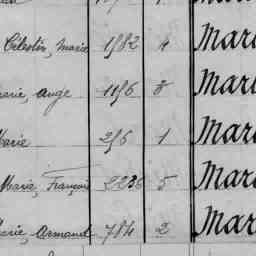 Célestin, Marie 1982 4 Mar
Marie, Ange 1196 8 Mar
Marie 296 1 Mar
Marie, François 2236 5 Mar
Marie, Armand 784 2 Mar